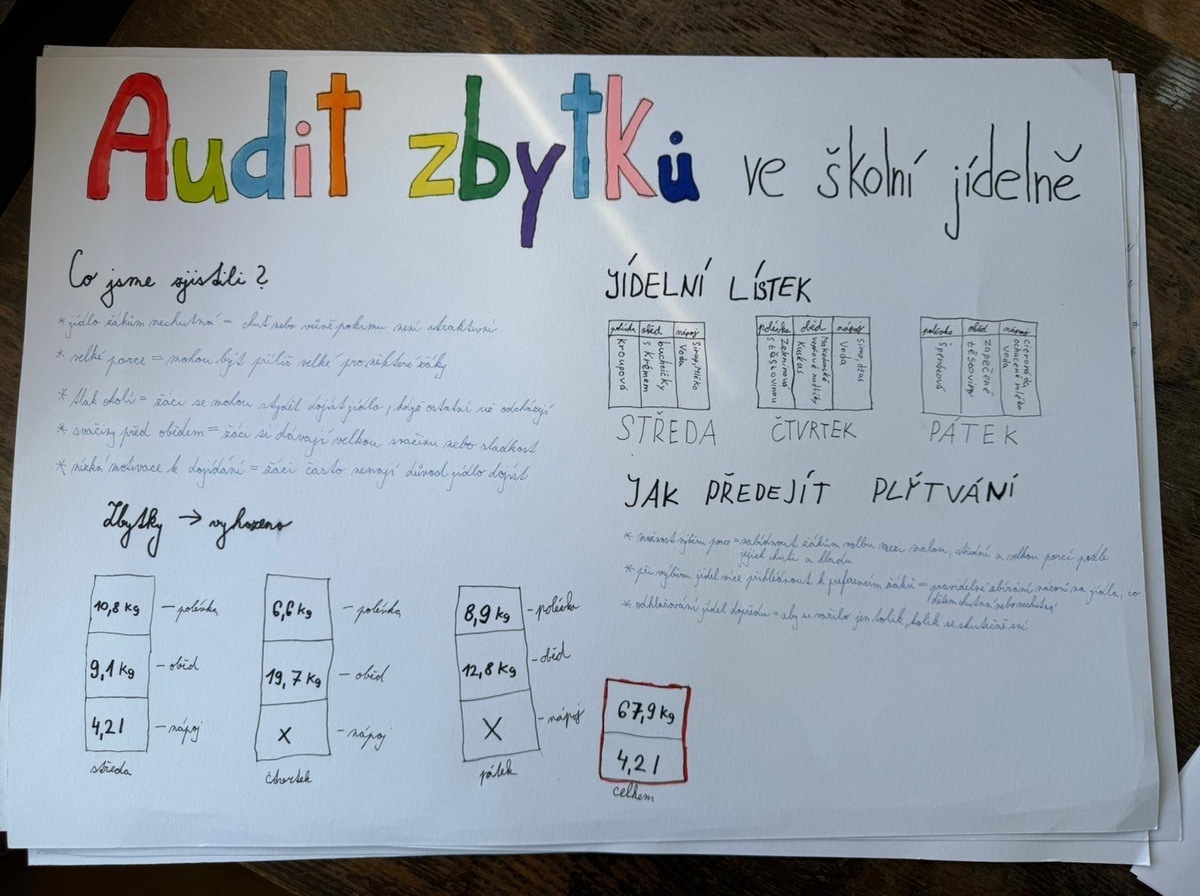 Audit zbytků ve školní jídelně
Co jsme zjistili?
* jídlo žákům nechutná = chuť nebo vůně pokrmu není atraktivní
* velké porce = mohou být příliš velké pro některé žáky
* tlak okolí = žáci se mohou stydět dojíst jídlo, když ostatní už odcházejí
* svačiny před obědem = žáci si dávají velkou svačinu nebo sladkost
* nízká motivace k dojídání = žáci často nemají důvod jídlo dojíst
Zbytky → vyhozeno
10,8 kg – polévka
9,1 kg – oběd
4,2 l – nápoj
středa
6,6 kg – polévka
19,7 kg – oběd
X – nápoj
čtvrtek
8,9 kg – polévka
12,8 kg – oběd
X – nápoj
pátek
JÍDELNÍ LÍSTEK
polévka oběd nápoj
Kroupová
buchtičky
s krémem
Sirup, Mléko
Voda
STŘEDA
polévka oběd nápoj
Zeleninová
s těstovinou
vepřové nudličky
Kuskus
Sirup, džus
Voda
ČTVRTEK
polévka oběd nápoj
Špenátová
zapečené
těstoviny
citronáda,
ochucené mléko
Voda
PÁTEK
JAK PŘEDEJÍT PLÝTVÁNÍ
* možnost výběru porce = nabídnout žákům volbu mezi malou, střední a velkou porcí podle
jejich chuti a hladu
* při výběru jídel více přihlédnout k preferencím žáků = pravidelné sbírání názorů na jídla, co
dětem chutná nebo nechutná
* odhlašování jídel dopředu = aby se vařilo jen tolik, kolik se skutečně sní
67,9 kg
4,2 l
celkem